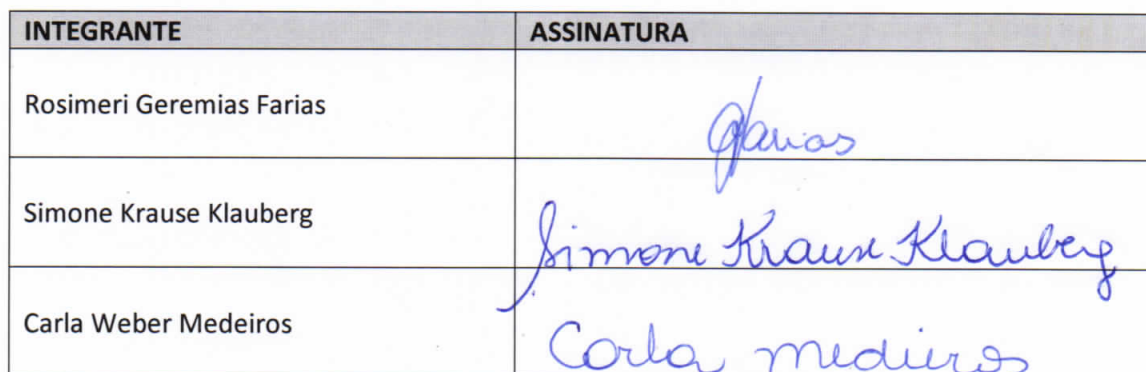 INTEGRANTE ASSINATURA
Rosimeri Geremias Farias Farias
Simone Krause Klauberg Simone Krause Klauberg
Carla Weber Medeiros Carla Medeiros